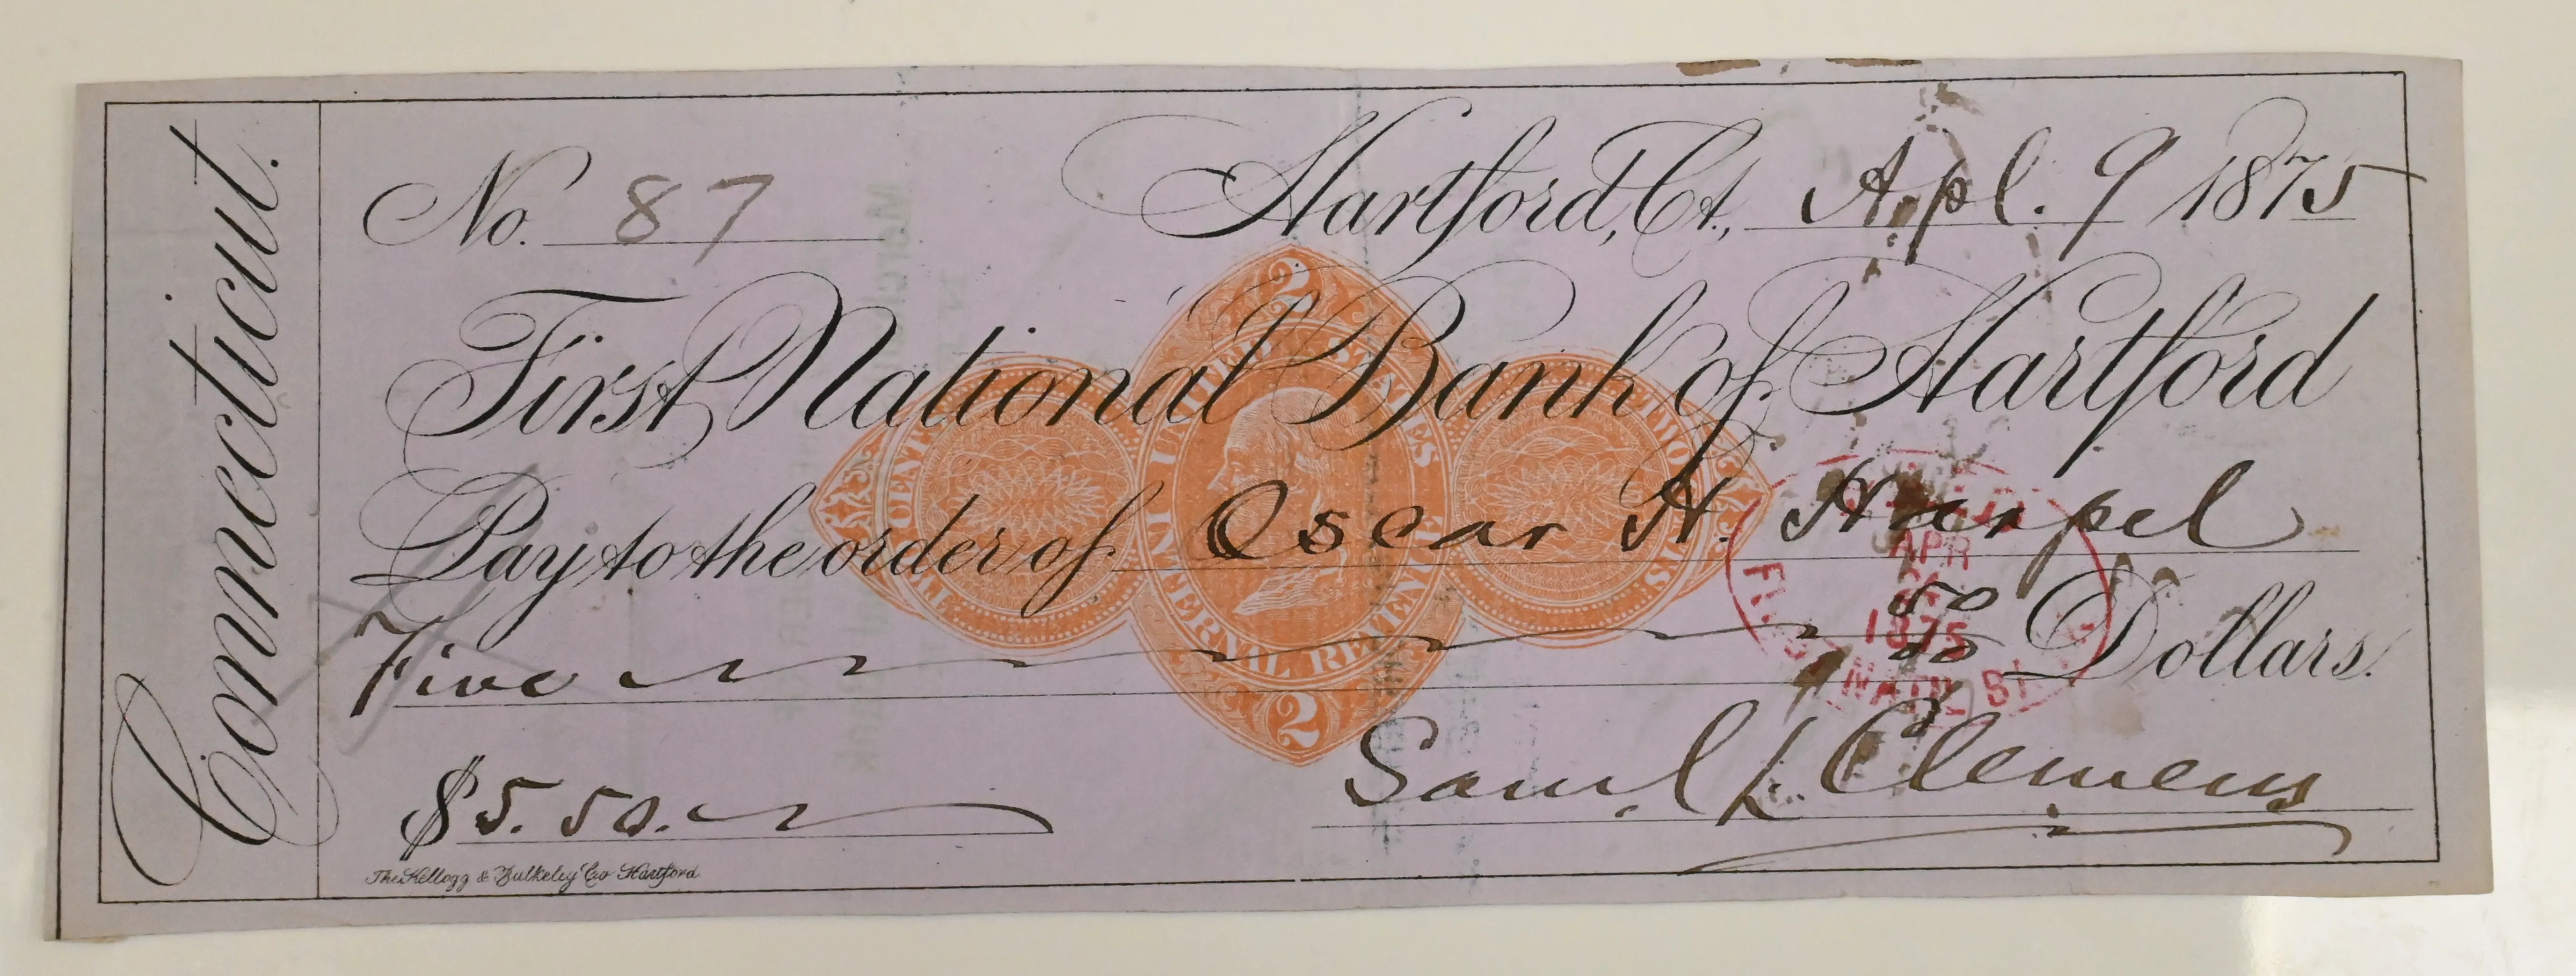 Connecticut.
No. 87 Hartford, Ct., Apl. 9 1875
First National Bank of Hartford
Pay to the order of Oscar H. Harpel
Five 50/00 Dollars.
$5.50.
Saml. L. Clemens
The Kellogg & Bulkeley Co Hartford
2
UNITED STATES
INTERNAL REVENUE
TWO CENTS
2
APR
1875
NATL BK